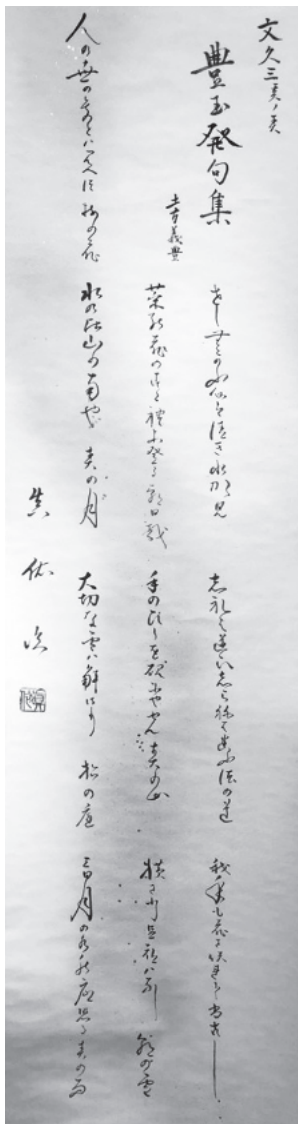 文久三亥ノ春
豊玉発句集
土方義豊
さし向ふ心は清き水かゝみ
志れは迷い志らねは迷ふ法の道
我年も花に咲れて尚古し
菜の花のすたれに登る朝日哉
手のひらを硯にやせん春の山
横に行足跡ハなし朝の雪
人の世のものとハ見へぬ桜の花
水の北山の南や春の月
大切な雪ハ解けり松の庭
三日月の水の底照る春の雨